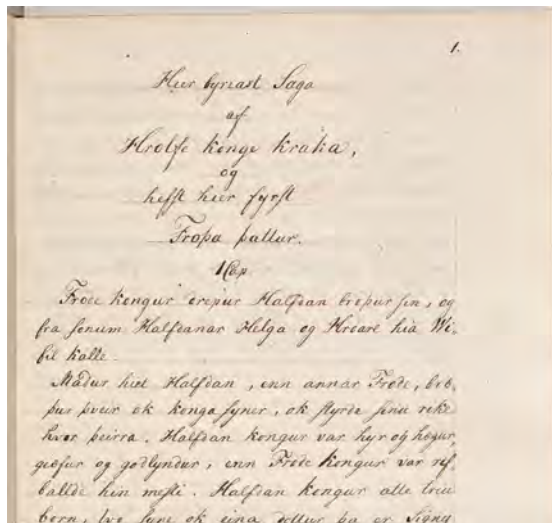 1.
Hier byriast Saga
af
Hrolfe konge kraka,
og
hefst hier fyrst
Froþa þattur.
1 Cap
Froðe kongur drepur Halfdan broþur sin, og
fra sonum Halfdanar Helga og Hroare hia Wi-
fil kalle.
Madur hiet Halfdan, enn annar Froðe, bræ-
þur þveir ok konga syner, ok styrde sinu rike
hvor þeirra. Halfdan kongur var hyr og hægur,
giæfur og godlyndur, enn Froðe kongur var rif-
ballde hin mesti. Halfdan kongur atte triu
born, tvo syne ok eina dottur þa er Signy